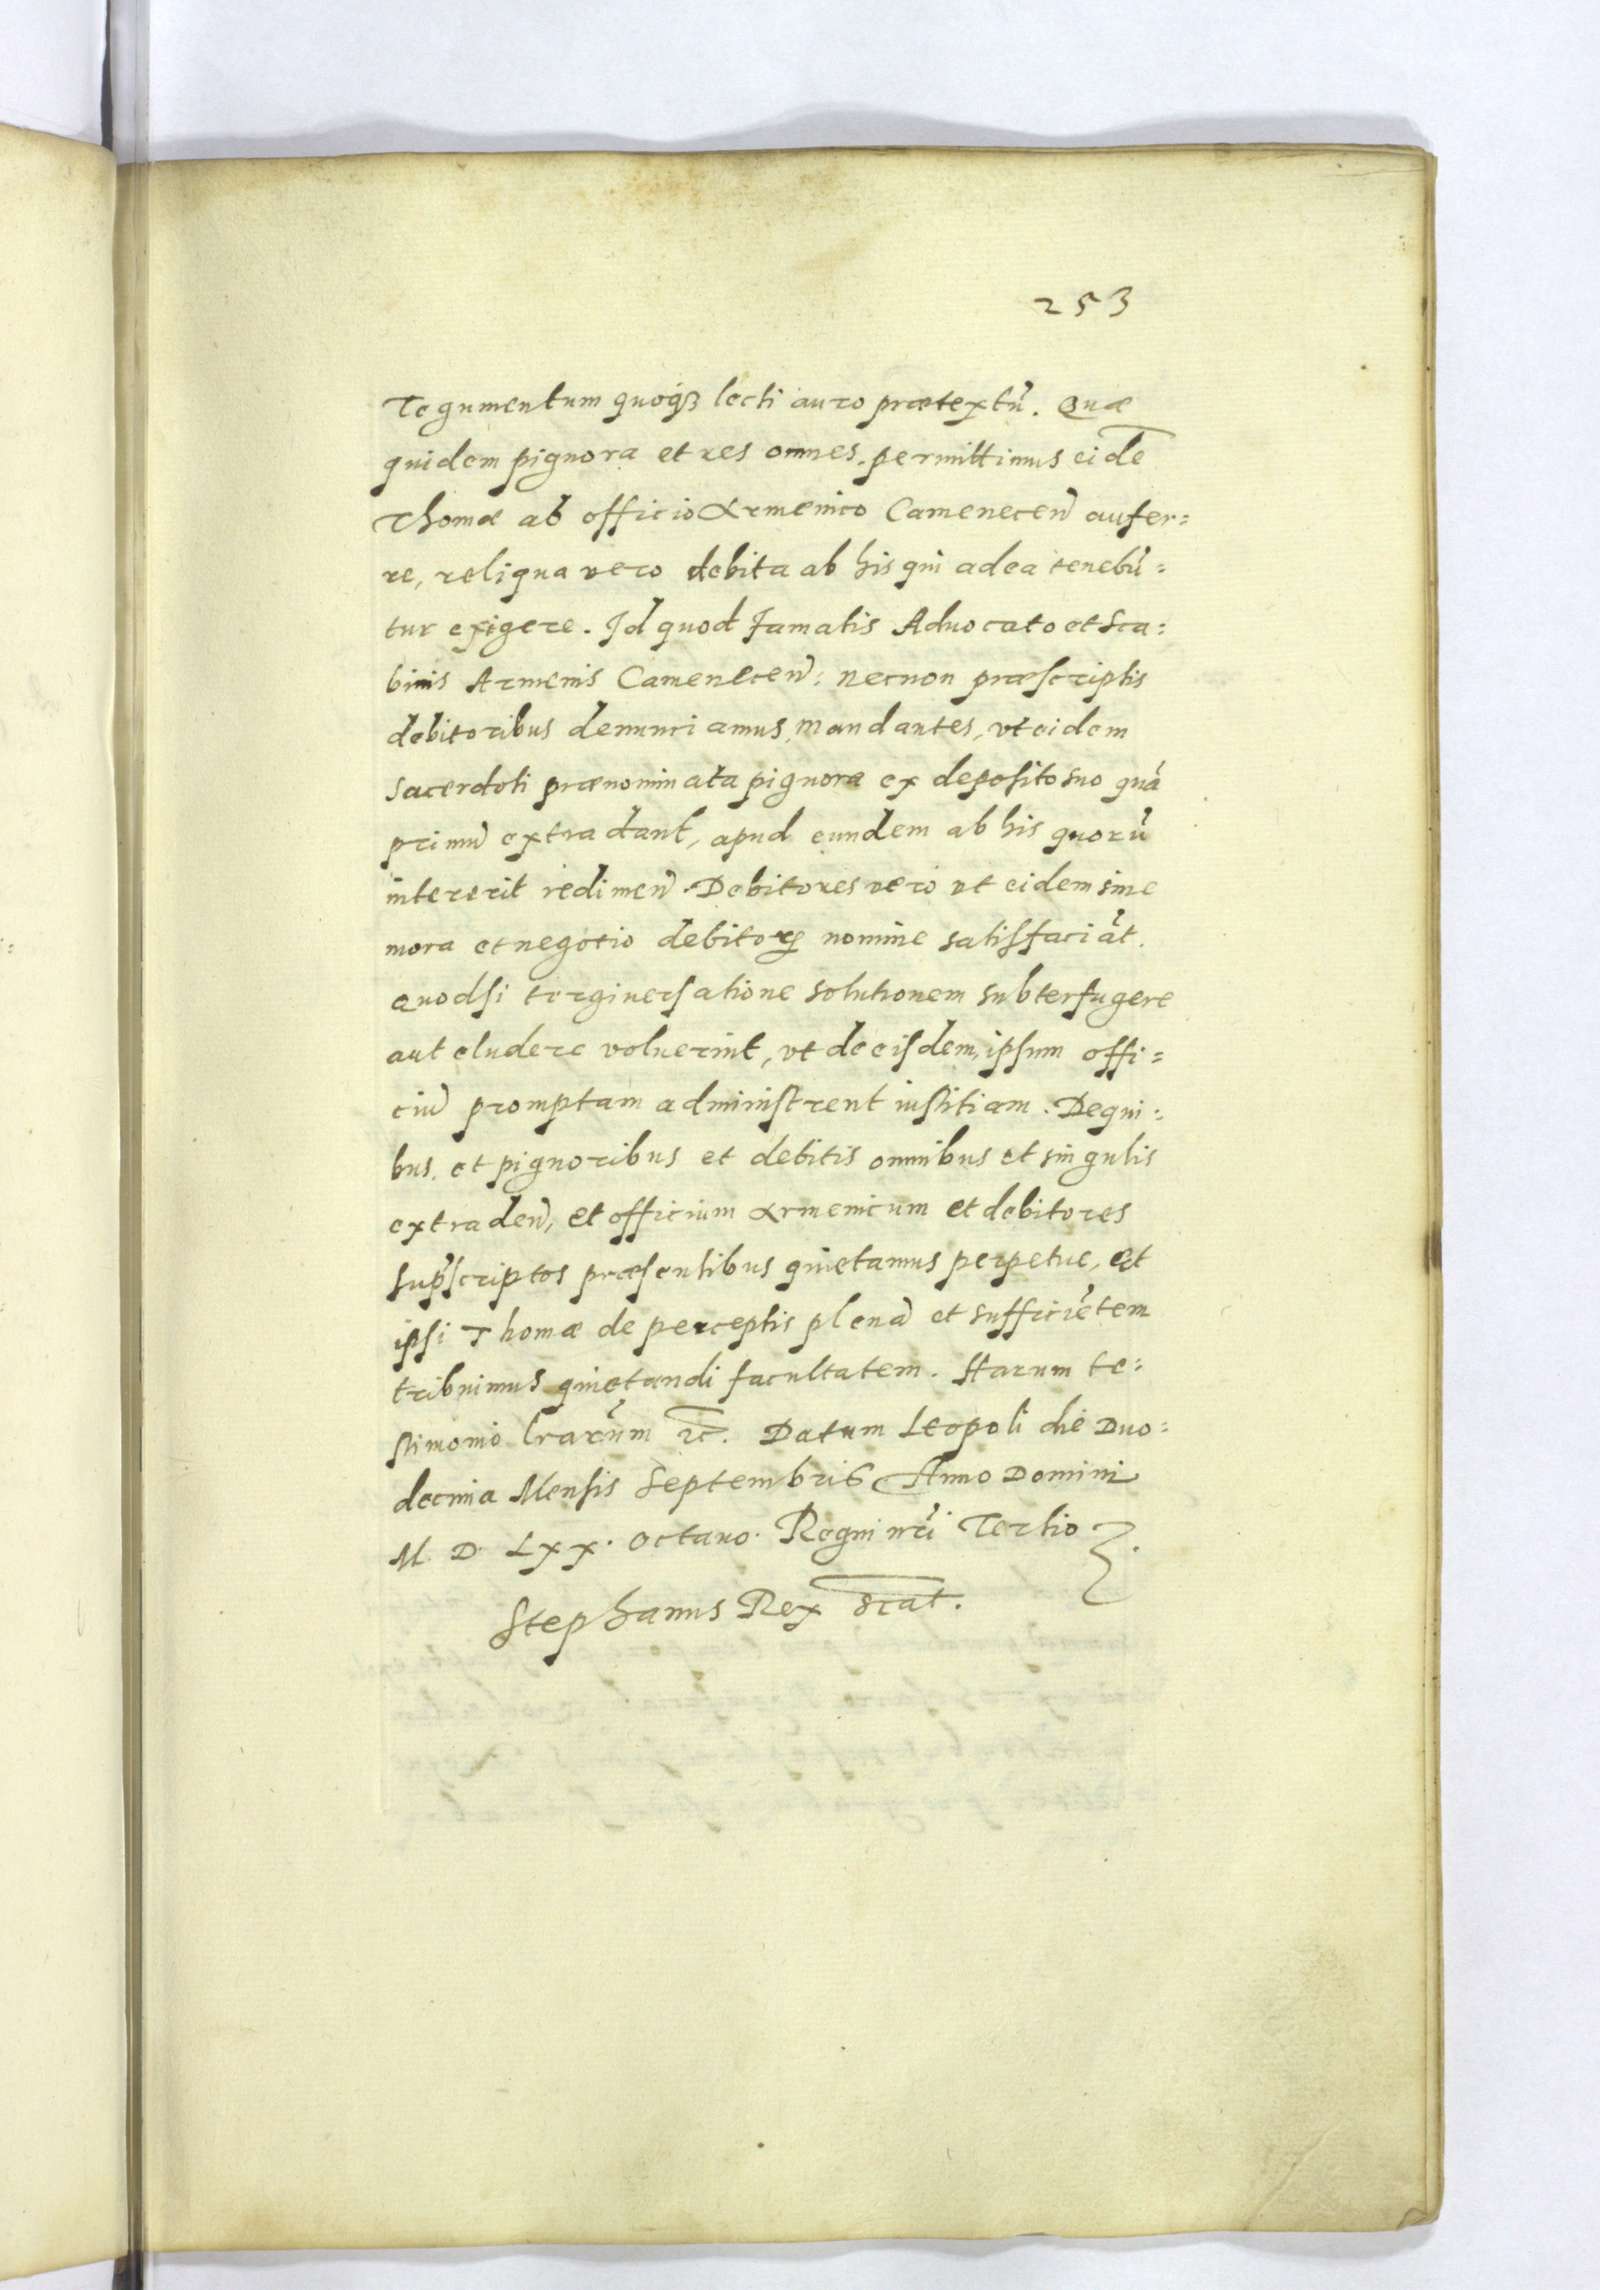 253
Tegumentum quoq₃ lecti auro prætextũ. Quæ
quidem pignora et res omnes, permittimus eidẽ
Thomæ ab officio Armenico Camenecen̄ aufer=
re, reliqua vero debita ab his qui ad ea tenebũ=
tur exigere. Id quod famatis Aduocato et Sca=
binis Armenis Camenecen̄: necnon præscriptis
debitoribus denunciamus, mandantes, vt eidem
sacerdoti prænominata pignora ex deposito suo quã
primũ extradant, apud eundem ab his quorũ
intererit redimen̄. Debitores vero vt eidem sine
mora et negotio debitoꝝ nomine satisfaciãt.
Quodsi tergiuersatione solutionem subterfugere
aut eludere voluerint, vt de eisdem, ipsum offi=
ciũ promptam administrent iustitiam. De qui=
bus, et pignoribus et debitis omnibus et singulis
extraden̄, et officium Armenicum et debitores
sup̃scriptos præsentibus quietamus perpetue, et
ipsi Thomæ de perceptis plenã et sufficiẽtem
tribuimus quietandi facultatem. Harum te=
stimonio l̃rarũm ꝛc̄. Datum Leopoli die Duo=
decima Mensis Septembris Anno Domini
M. D. Lxx. octauo. Regni nr̃i Tertio
Stephanus Rex sc̄at.